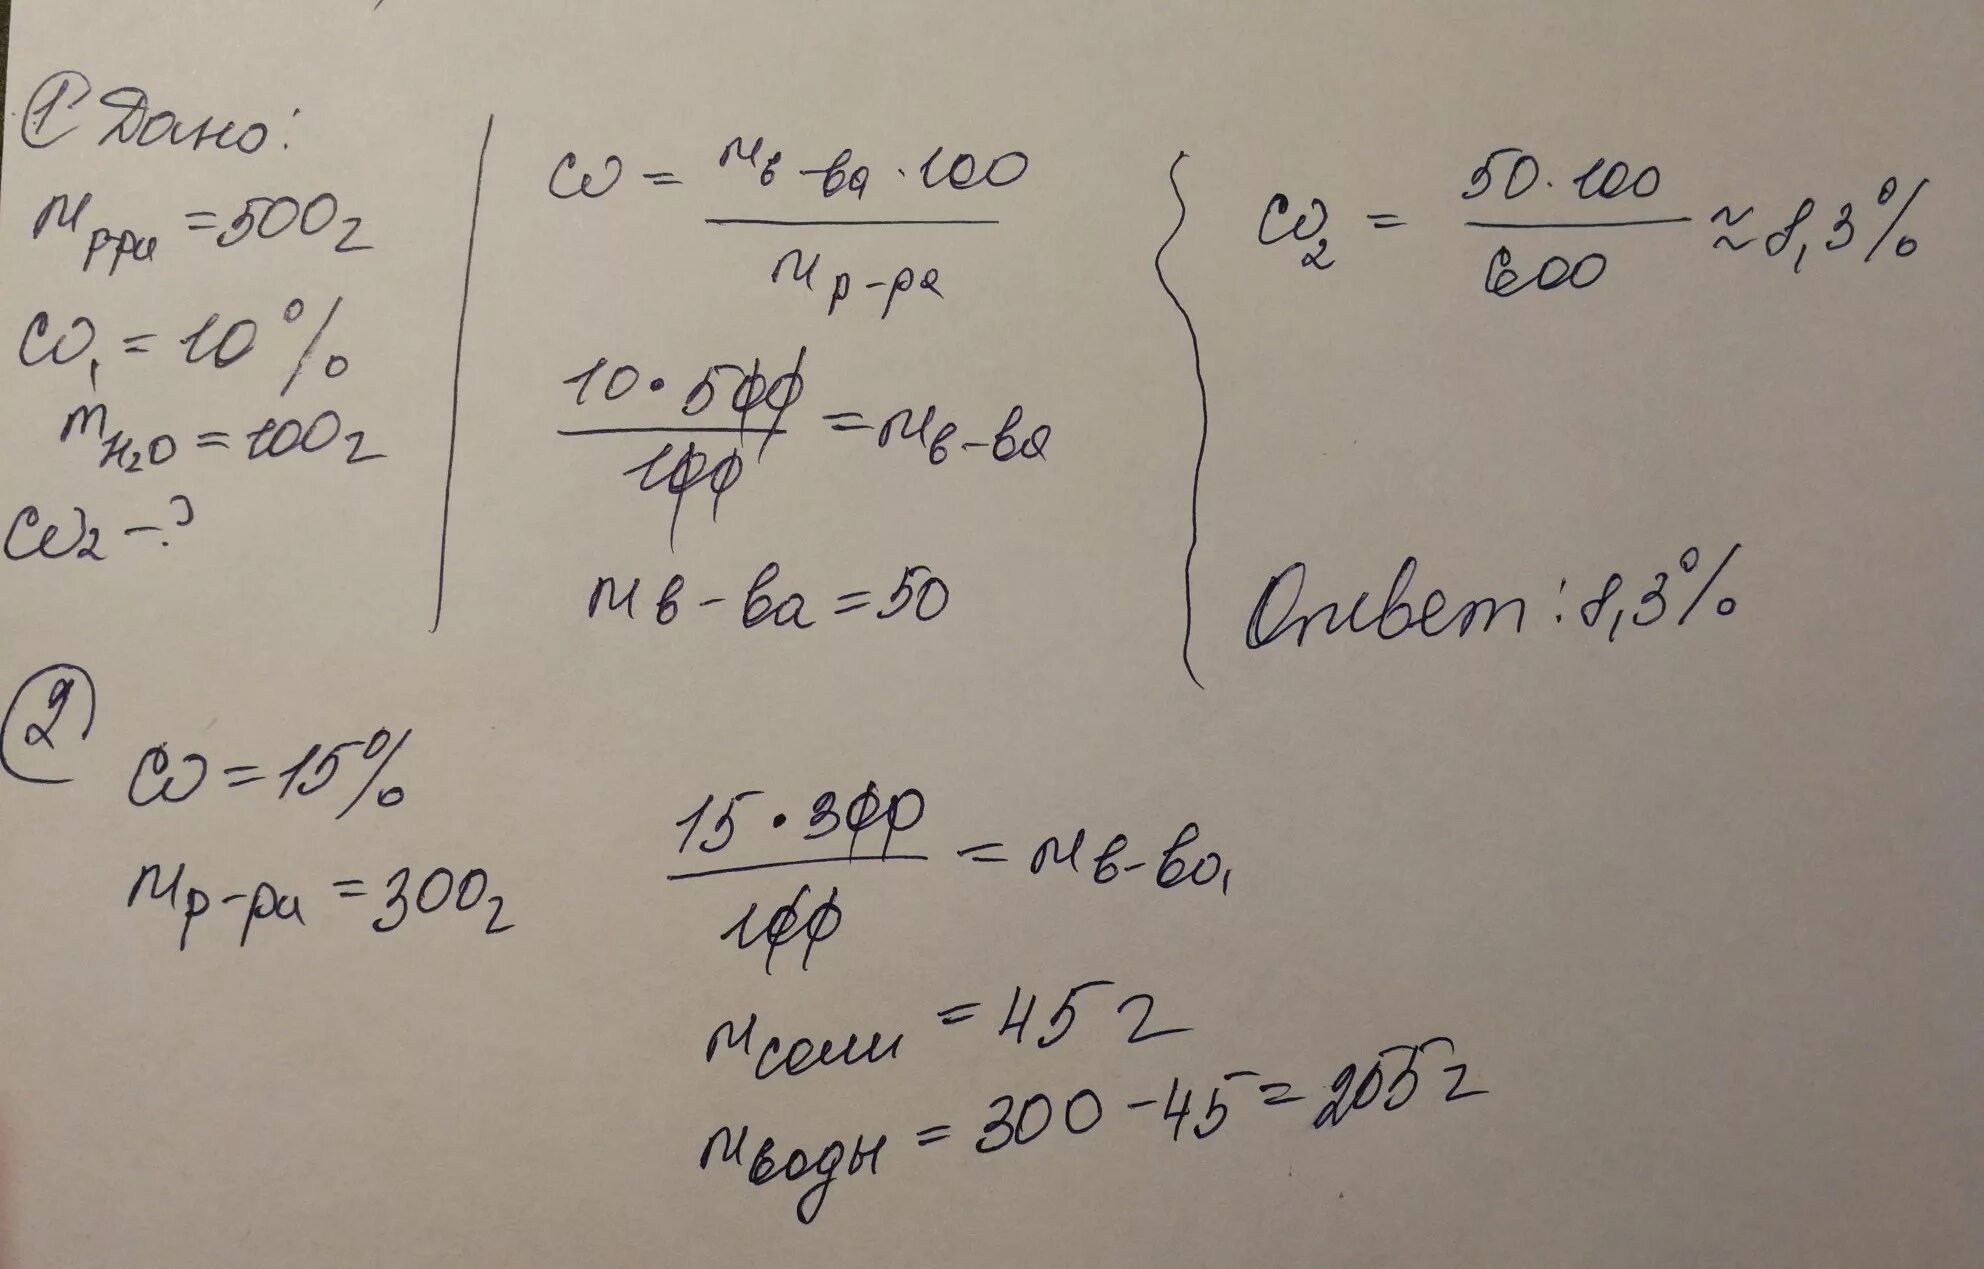 ① Дано:
m р-ра = 500г
ω₁ = 10%
m H₂O = 100г
ω₂ - ?
ω = m в-ва · 100 / m р-ра
10 · 500 / 100 = m в-ва
m в-ва = 50
ω₂ = 50 · 100 / 600 ≈ 8,3%
Ответ: 8,3%
②
ω = 15%
m р-ра = 300г
15 · 300 / 100 = m в-ва,
m соли = 45 г
m воды = 300 - 45 = 255г